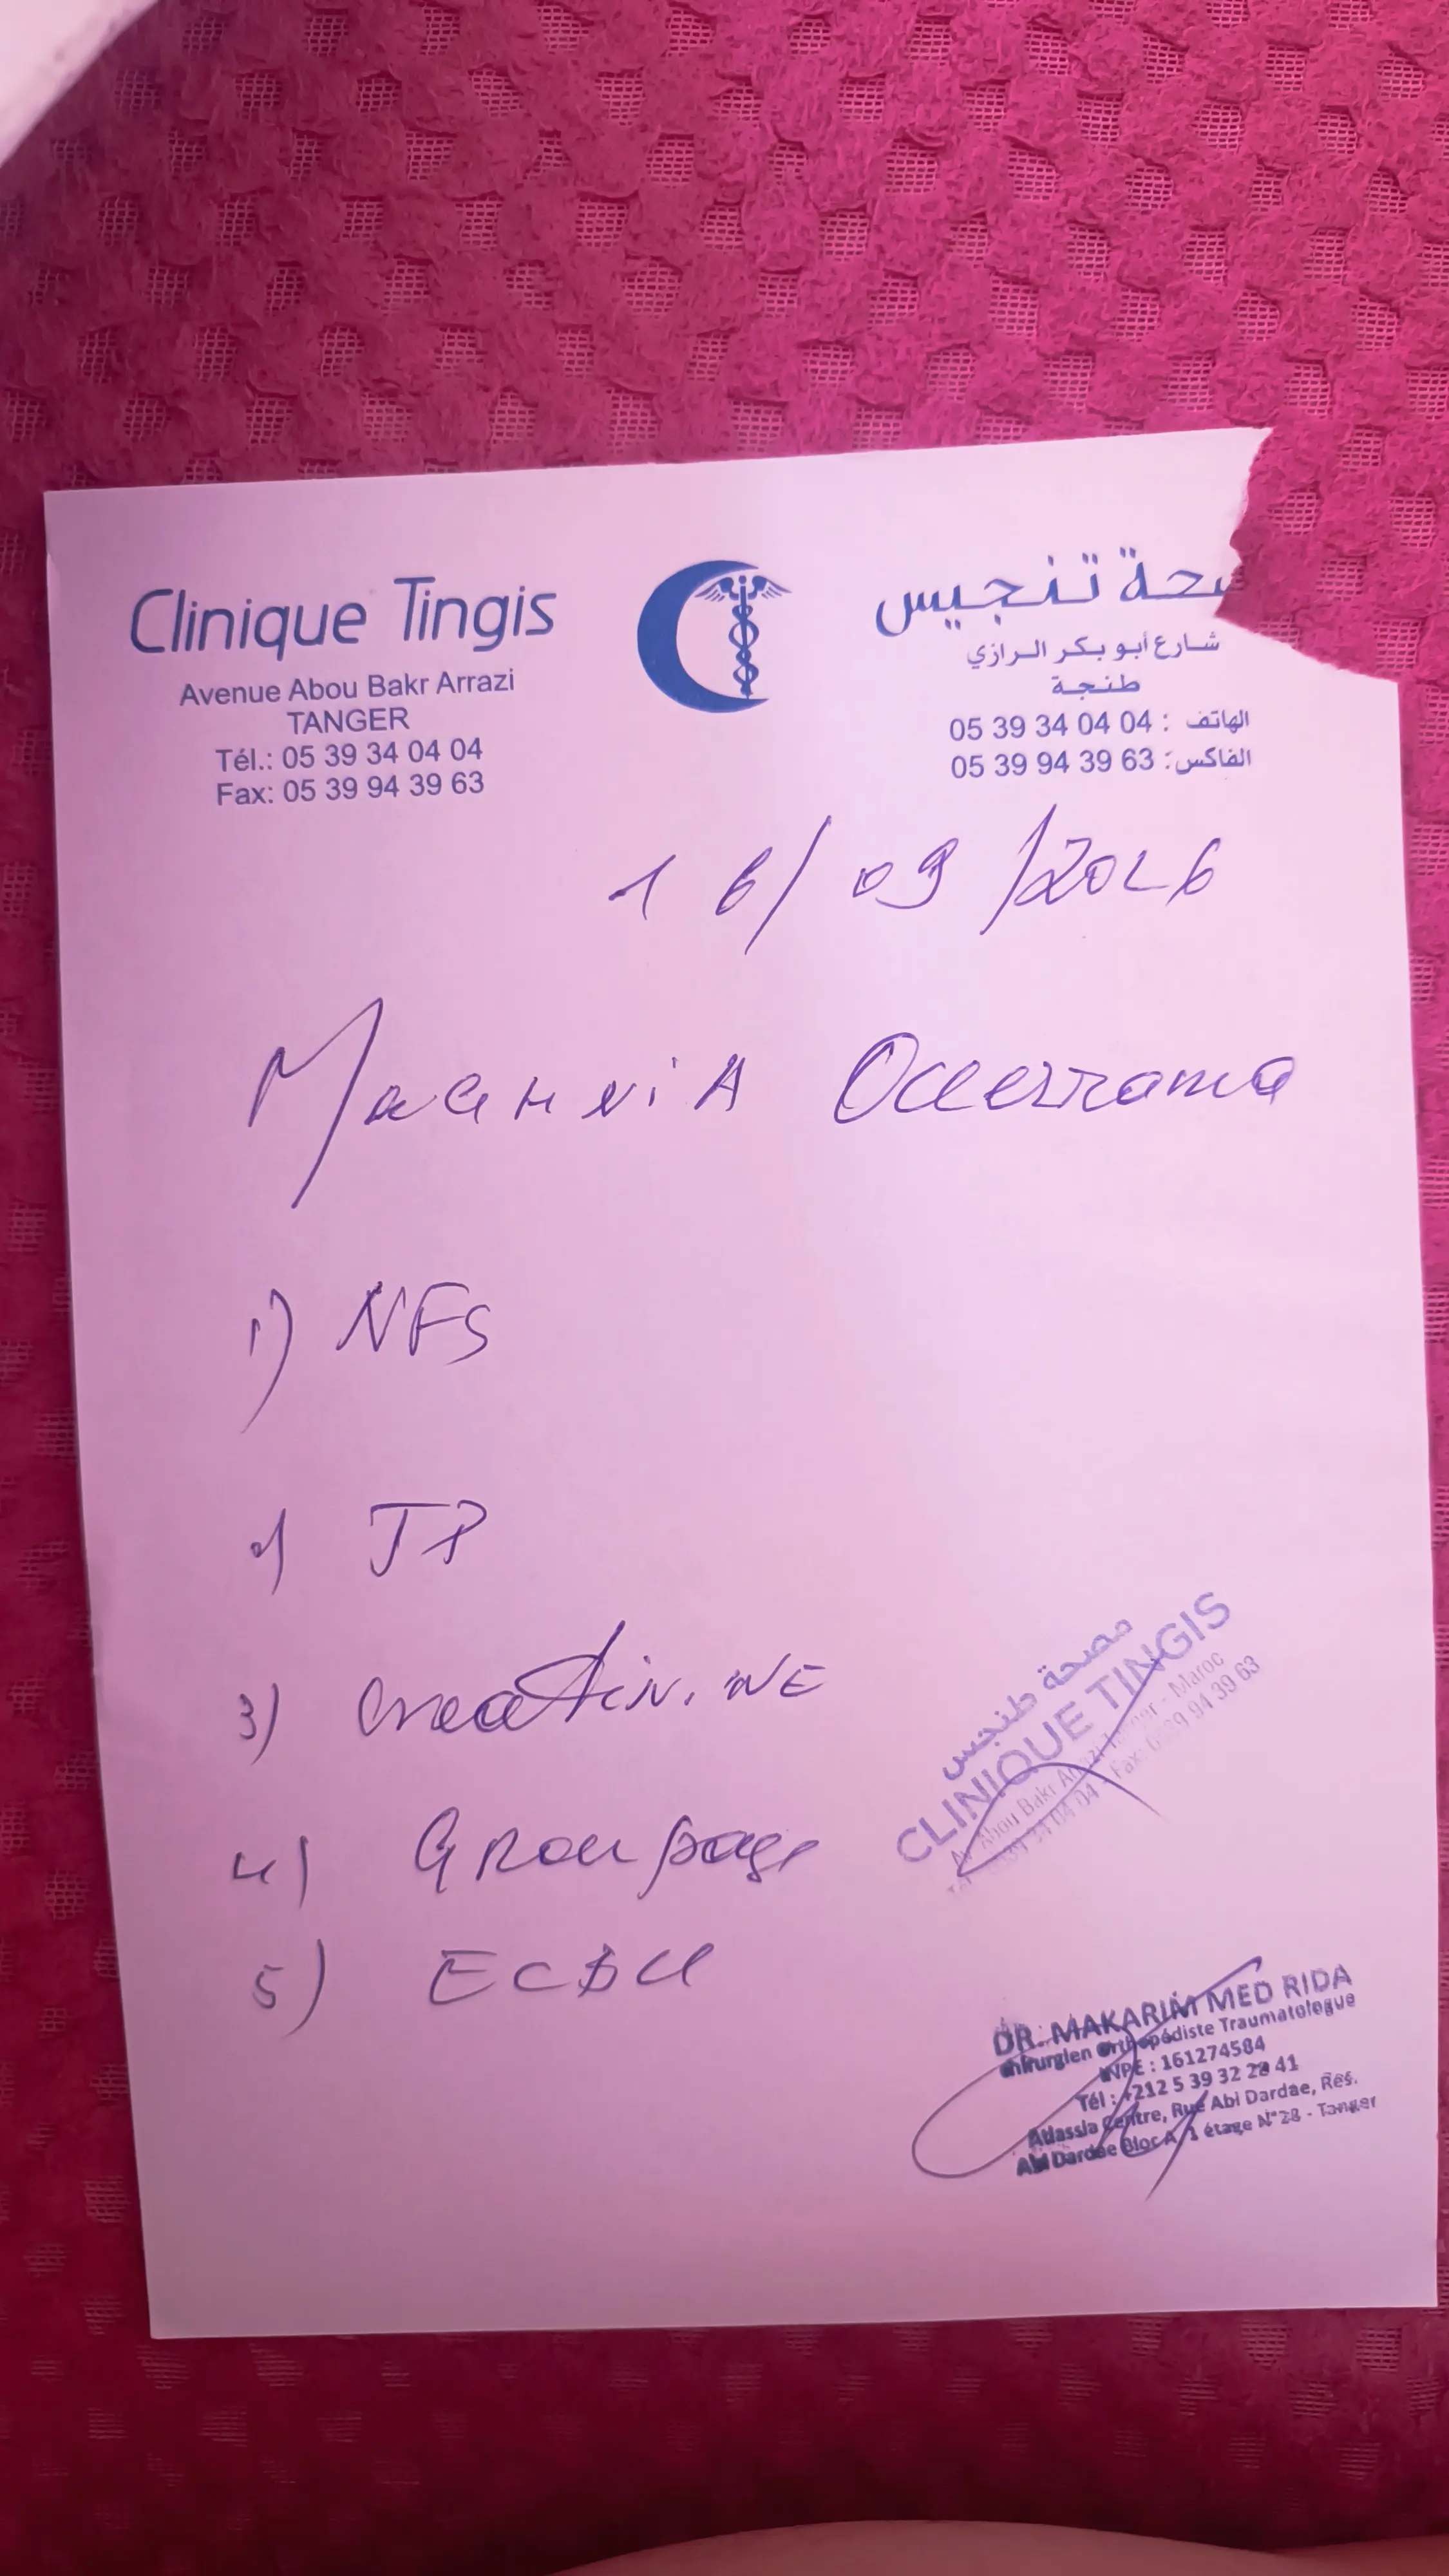 Clinique Tingis
Avenue Abou Bakr Arrazi
TANGER
Tél.: 05 39 34 04 04
Fax: 05 39 94 39 63
تنجيس
شارع أبو بكر الرازي
طنجة
الهاتف : 05 39 34 04 04
الفاكس: 05 39 94 39 63
16/09/2026
1) NFS
2) TP
3) creatinine
4) Groupage
5) ECBU
مصحة طنجس
CLINIQUE TINGIS
Av. Abou Bakr Arrazi Tanger - Maroc
Fax: 0539 94 39 63
DR. MAKARIM MED RIDA
Chirurgien Orthopédiste Traumatologue
INPE : 161274584
Tél : +212 5 39 32 28 41
Atlassia Centre, Rue Abi Dardae, Rés.
Abi Dardae Bloc A, 1 étage N°28 - Tanger